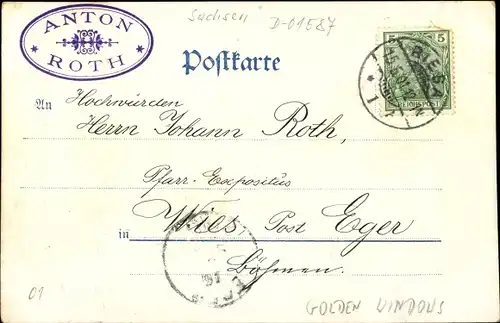 ANTON
ROTH
Sachsen D-01587
Postkarte
5 5
RIESA
REICHSPOST
An Hochwürden
Herrn Johann Roth,
Pfarr-Expositus
in Wies Post Eger
Böhmen.
01
GOLDEN WINDOWS